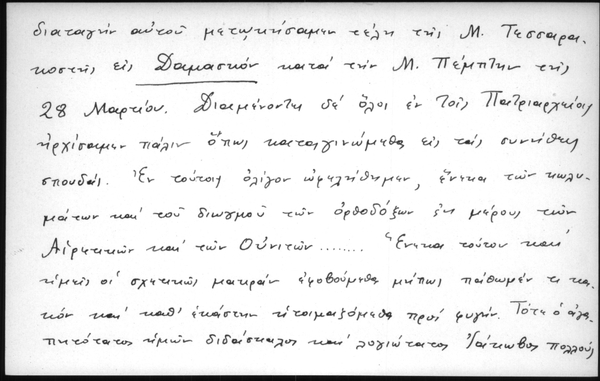 διαταγήν αὐτοῦ μετῳκήσαμεν τέλη τῆς Μ. Τεσσαρα-
κοστῆς εἰς Δαμασκόν κατά τήν Μ. Πέμπτην τῆς
28 Μαρτίου. Διαμένοντες δέ ὅλοι ἐν τοῖς Πατριαρχείοις
ἠρχίσαμεν πάλιν ὅπως καταγινώμεθα εἰς τάς συνήθεις
σπουδάς. Ἐν τούτοις ὀλίγον ὠφελήθημεν, ἕνεκα τῶν κωλυ-
μάτων καί τοῦ διωγμοῦ τῶν ὀρθοδόξων ἐκ μέρους τῶν
Αἱρετικῶν καί τῶν Οὐνιτῶν ........ Ἕνεκα τούτου καί
ἡμεῖς οἱ σχετικῶς μακράν ἐφοβούμεθα μήπως πάθωμέν τι κα-
κόν καί καθ' ἑκάστην ἡτοιμαζόμεθα πρός φυγήν. Τότε ὁ ἀγα-
πητότατος ἡμῶν διδάσκαλος καί λογιώτατος Ἰάκωβος πολλούς